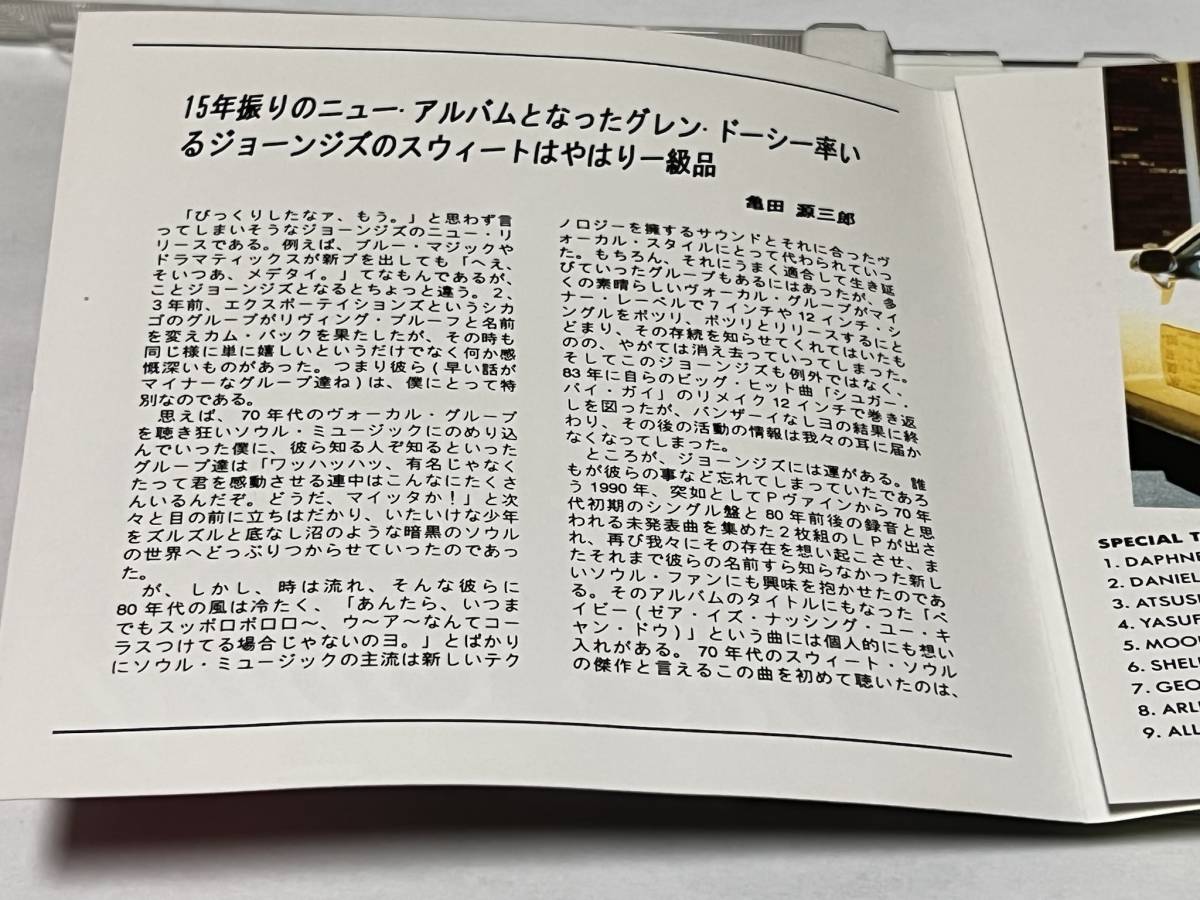 15年振りのニュー・アルバムとなったグレン・ドーシー率い
るジョーンジズのスウィートはやはり一級品
亀田 源三郎
「びっくりしたなァ、もう。」と思わず言
ってしまいそうなジョーンジズのニュー・リ
リースである。例えば、ブルー・マジックや
ドラマティックスが新ブを出しても「へえ、
そいつあ、メデタイ。」てなもんであるが、
ことジョーンジズとなるとちょっと違う。2、
3年前、エクスポーテイションズというシカ
ゴのグループがリヴィング・プルーフと名前
を変えカム・バックを果たしたが、その時も
同じ様に単に嬉しいというだけでなく何か感
慨深いものがあった。つまり彼ら(早い話が
マイナーなグループ達ね)は、僕にとって特
別なのである。
思えば、70年代のヴォーカル・グループ
を聴き狂いソウル・ミュージックにのめり込
んでいった僕に、彼ら知る人ぞ知るといった
グループ達は「ワッハッハッ、有名じゃなく
たって君を感動させる連中はこんなにたくさ
んいるんだぞ。どうだ、マイッタか!」と次
々と目の前に立ちはだかり、いたいけな少年
をズルズルと底なし沼のような暗黒のソウル
の世界へどっぷりつからせていったのであっ
た。
が、しかし、時は流れ、そんな彼らに
80年代の風は冷たく、「あんたら、いつま
でもスッポロポロロ〜、ウ〜ア〜なんてコー
ラスつけてる場合じゃないのヨ。」とばかり
にソウル・ミュージックの主流は新しいテク
ノロジーを擁するサウンドとそれに合ったヴ
ォーカル・スタイルにとって代わられていっ
た。もちろん、それにうまく適合して生き延
びていったグループもあるにはあったが、多
くの素晴らしいヴォーカル・グループがマイ
ナー・レーベルで7インチや12インチ・シ
ングルをポツリ、ポツリとリリースするにと
どまり、その存続を知らせてくれてはいたも
のの、やがては消え去っていってしまった。
そしてこのジョーンジズも例外ではなく、
83年に自らのビッグ・ヒット曲「シュガー・
パイ・ガイ」のリメイク12インチで巻き返
しを図ったが、バンザーイなしヨの結果に終
わり、その後の活動の情報は我々の耳に届か
なくなってしまった。
ところが、ジョーンジズには運がある。誰
もが彼らの事など忘れてしまっていたであろ
う1990年、突如としてPヴァインから70年
代初期のシングル盤と80年前後の録音と思
われる未発表曲を集めた2枚組のLPが出さ
れ、再び我々にその存在を想い起こさせ、ま
たそれまで彼らの名前すら知らなかった新し
いソウル・ファンにも興味を抱かせたのであ
る。そのアルバムのタイトルにもなった「ベ
イビー(ゼア・イズ・ナッシング・ユー・キ
ャン・ドウ)」という曲には個人的にも想い
入れがある。70年代のスウィート・ソウル
の傑作と言えるこの曲を初めて聴いたのは、
SPECIAL T
1. DAPHNE
2. DANIEL
3. ATSUS
4. YASUF
5. MOO
6. SHEL
7. GEO
8. ARL
9. ALL